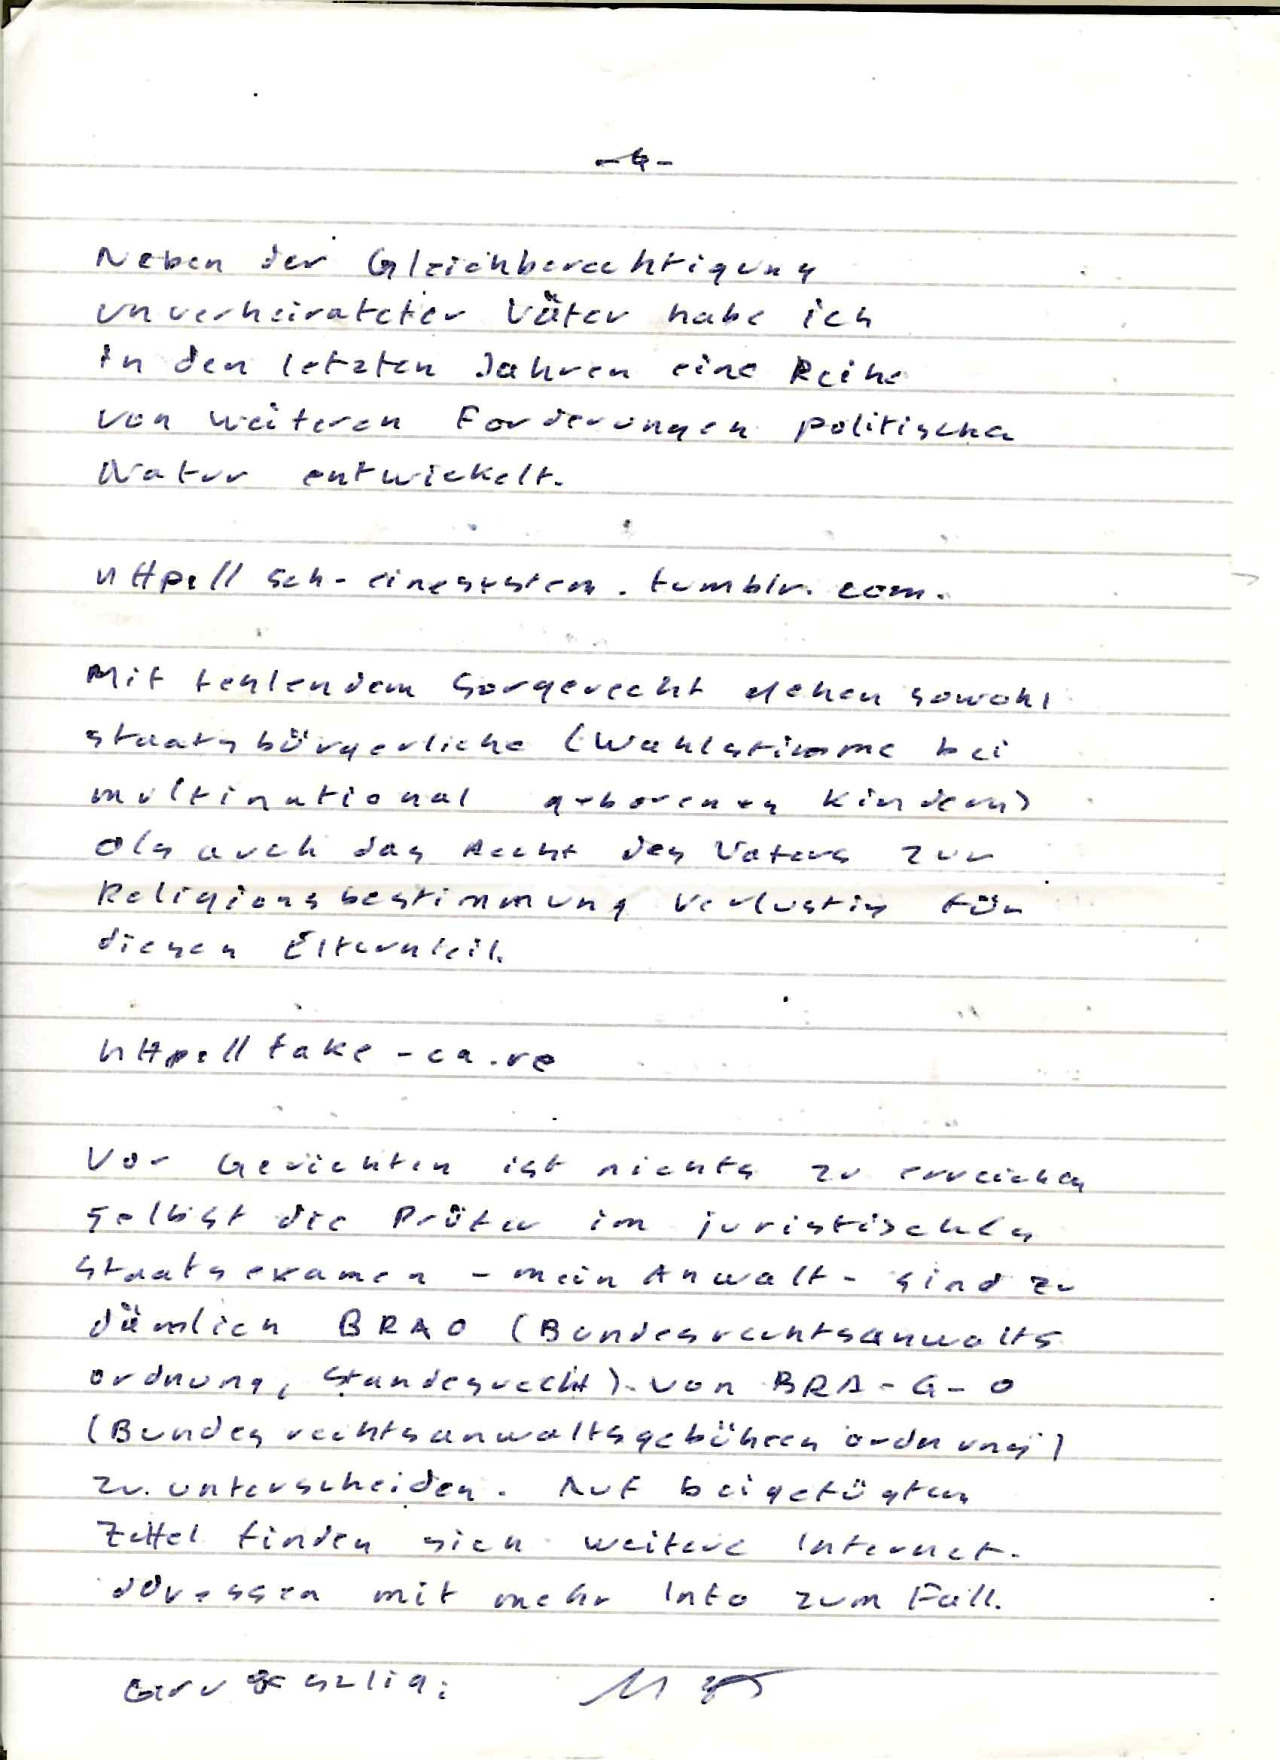 -4-
Neben der Gleichberechtigung
unverheirateter Väter habe ich
in den letzten Jahren eine Reihe
von weiteren Forderungen politischer
Natur entwickelt.
http://sch-einesystem.tumblr.com.
Mit fehlendem Sorgerecht gehen sowohl
staatsbürgerliche (Wahlstimme bei
multinational geborenen Kindern)
als auch das Recht des Vaters zur
Religionsbestimmung verlustig für
diesen Elternteil.
http://take-ca.re
Vor Gerichten ist nichts zu erreichen
selbst die Prüfer im juristischen
Staatsexamen - mein Anwalt - sind zu
dämlich BRAO (Bundesrechtsanwalts
ordnung, Standesrecht) von BRA-G-O
(Bundesrechtsanwaltsgebührenordnung)
zu unterscheiden. Auf beigefügten
Zettel finden sich weitere Internet-
adressen mit mehr Info zum Fall.